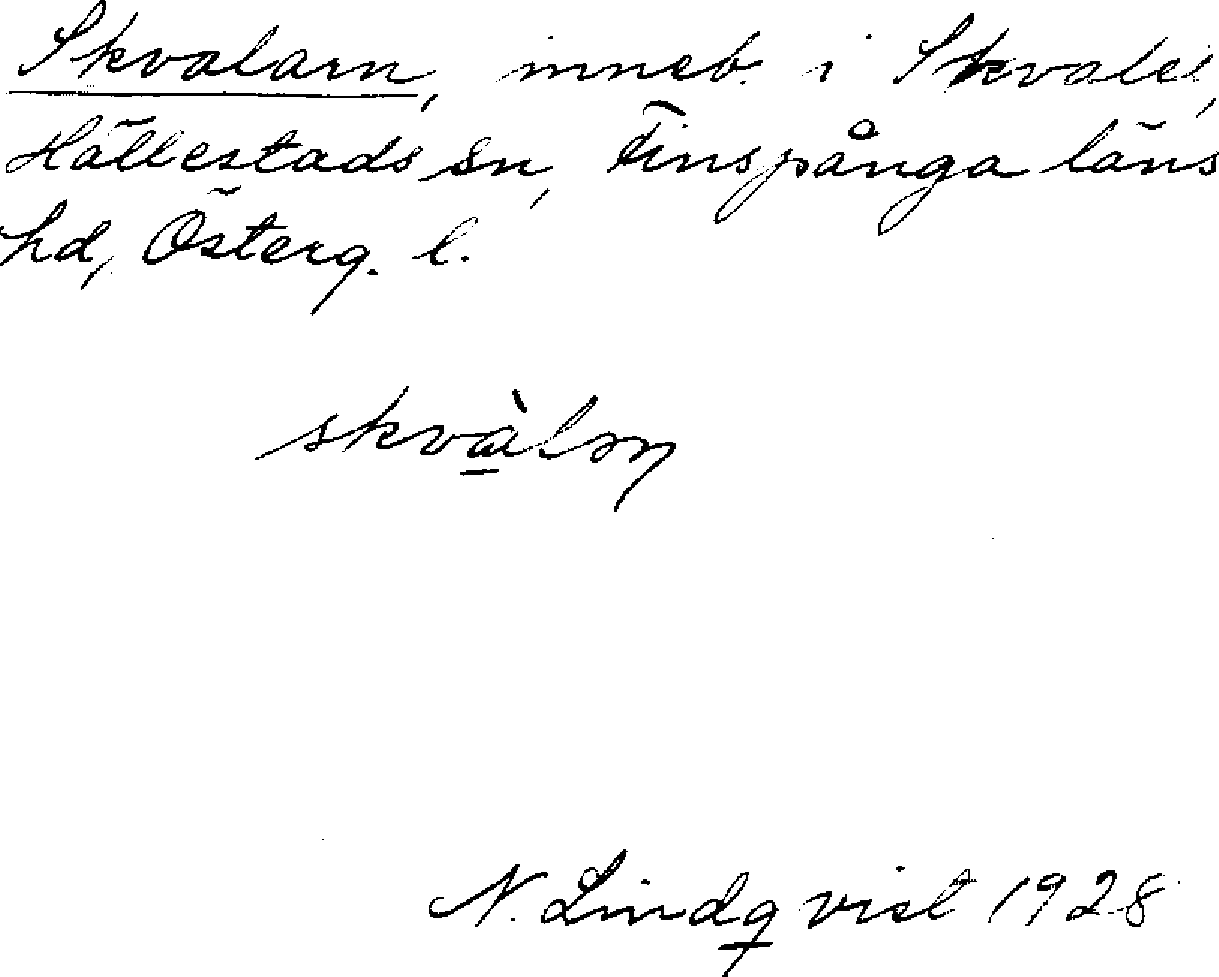 Skvalarn, inneb. i Skvalet,
Hällestads sn, Finspånga läns
hd, Österg. l.
N. Lindqvist 1928